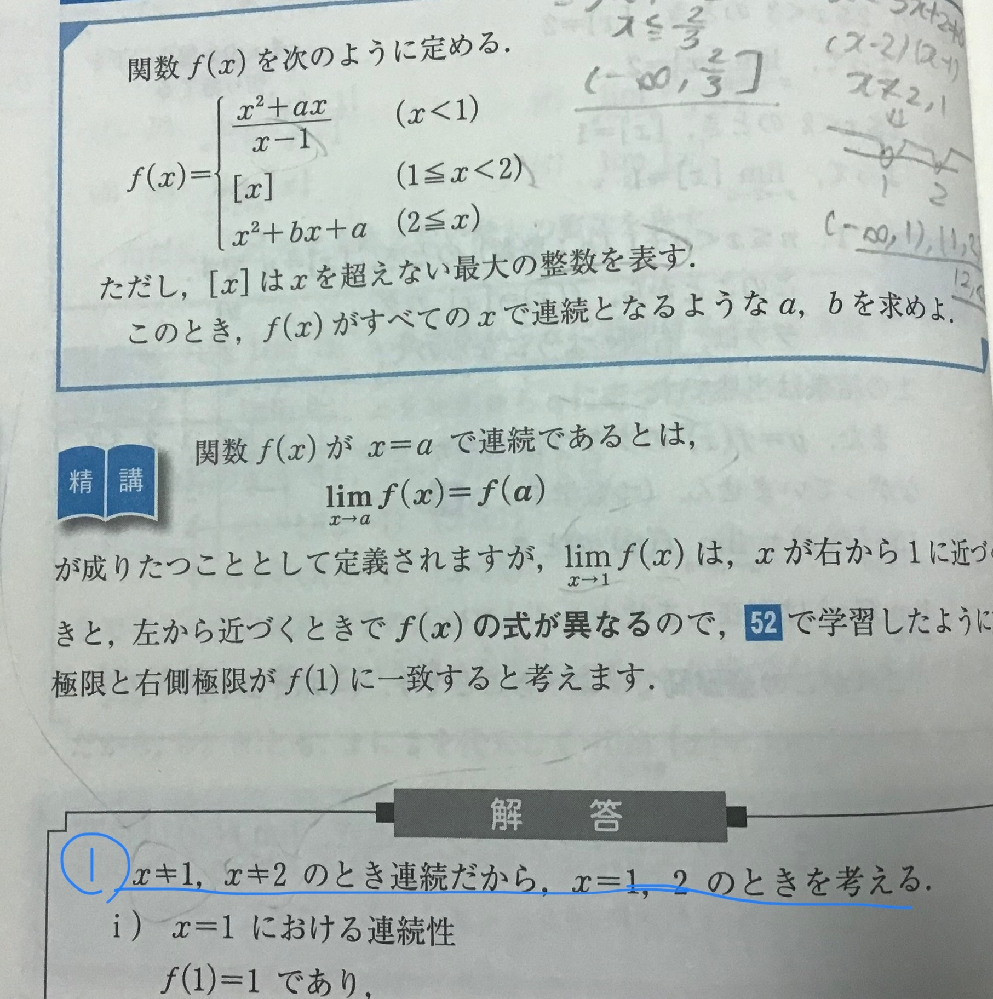 関数 f(x) を次のように定める.
f(x)={
x²+ax / x-1 (x<1)
[x] (1≦x<2)
x²+bx+a (2≦x)
ただし, [x]はxを超えない最大の整数を表す.
このとき, f(x)がすべてのxで連続となるようなa, bを求めよ.
x≦2/3
(-∞, 2/3]
(x-2)(x-1)
x≠2,1
1 2
精講
関数 f(x) が x=a で連続であるとは,
lim x→a f(x)=f(a)
が成りたつこととして定義されますが, lim x→1 f(x) は, x が右から1に近づ
きと, 左から近づくときで f(x) の式が異なるので, 52 で学習したように
極限と右側極限が f(1) に一致すると考えます.
解答
1 x≠1, x≠2 のとき連続だから, x=1, 2 のときを考える.
i) x=1 における連続性
f(1)=1 であり,